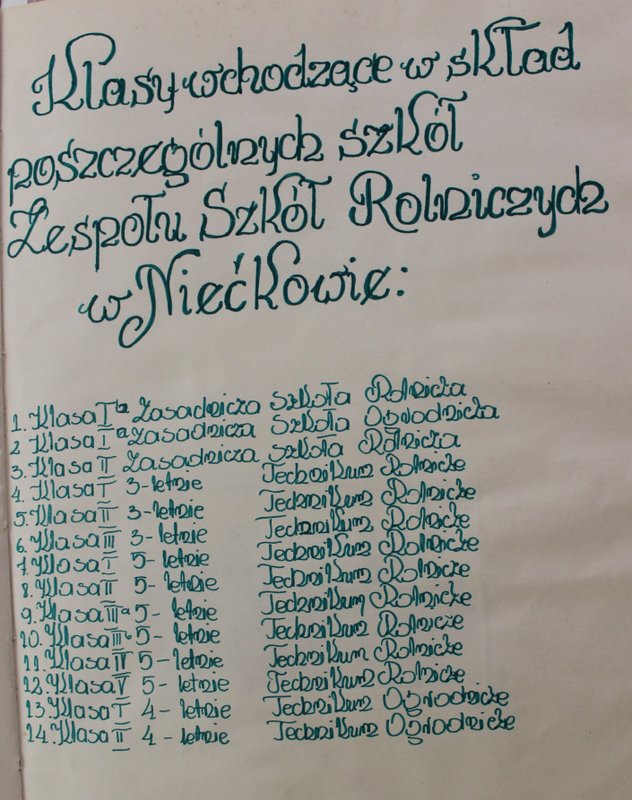 Klasy wchodzące w skład
poszczególnych szkół
Zespołu Szkół Rolniczych
w Niećkowie:
1. Klasa I b Zasadnicza Szkoła Rolnicza
2 Klasa I a Zasadnicza Szkoła Ogrodnicza
3. Klasa II Zasadnicza szkoła Rolnicza
4. Klasa I 3-letnie Technikum Rolnicze
5. Klasa II 3-letnie Technikum Rolnicze
6. Klasa III 3-letnie Technikum Rolnicze
7. Klasa I 5-letnie Technikum Rolnicze
8. Klasa II 5-letnie Technikum Rolnicze
9. Klasa III a 5-letnie Technikum Rolnicze
10. Klasa III b 5-letnie Technikum Rolnicze
11. Klasa IV 5-letnie Technikum Rolnicze
12. Klasa V 5-letnie Technikum Rolnicze
13. Klasa I 4-letnie Technikum Ogrodnicze
14. Klasa II 4-letnie Technikum Ogrodnicze